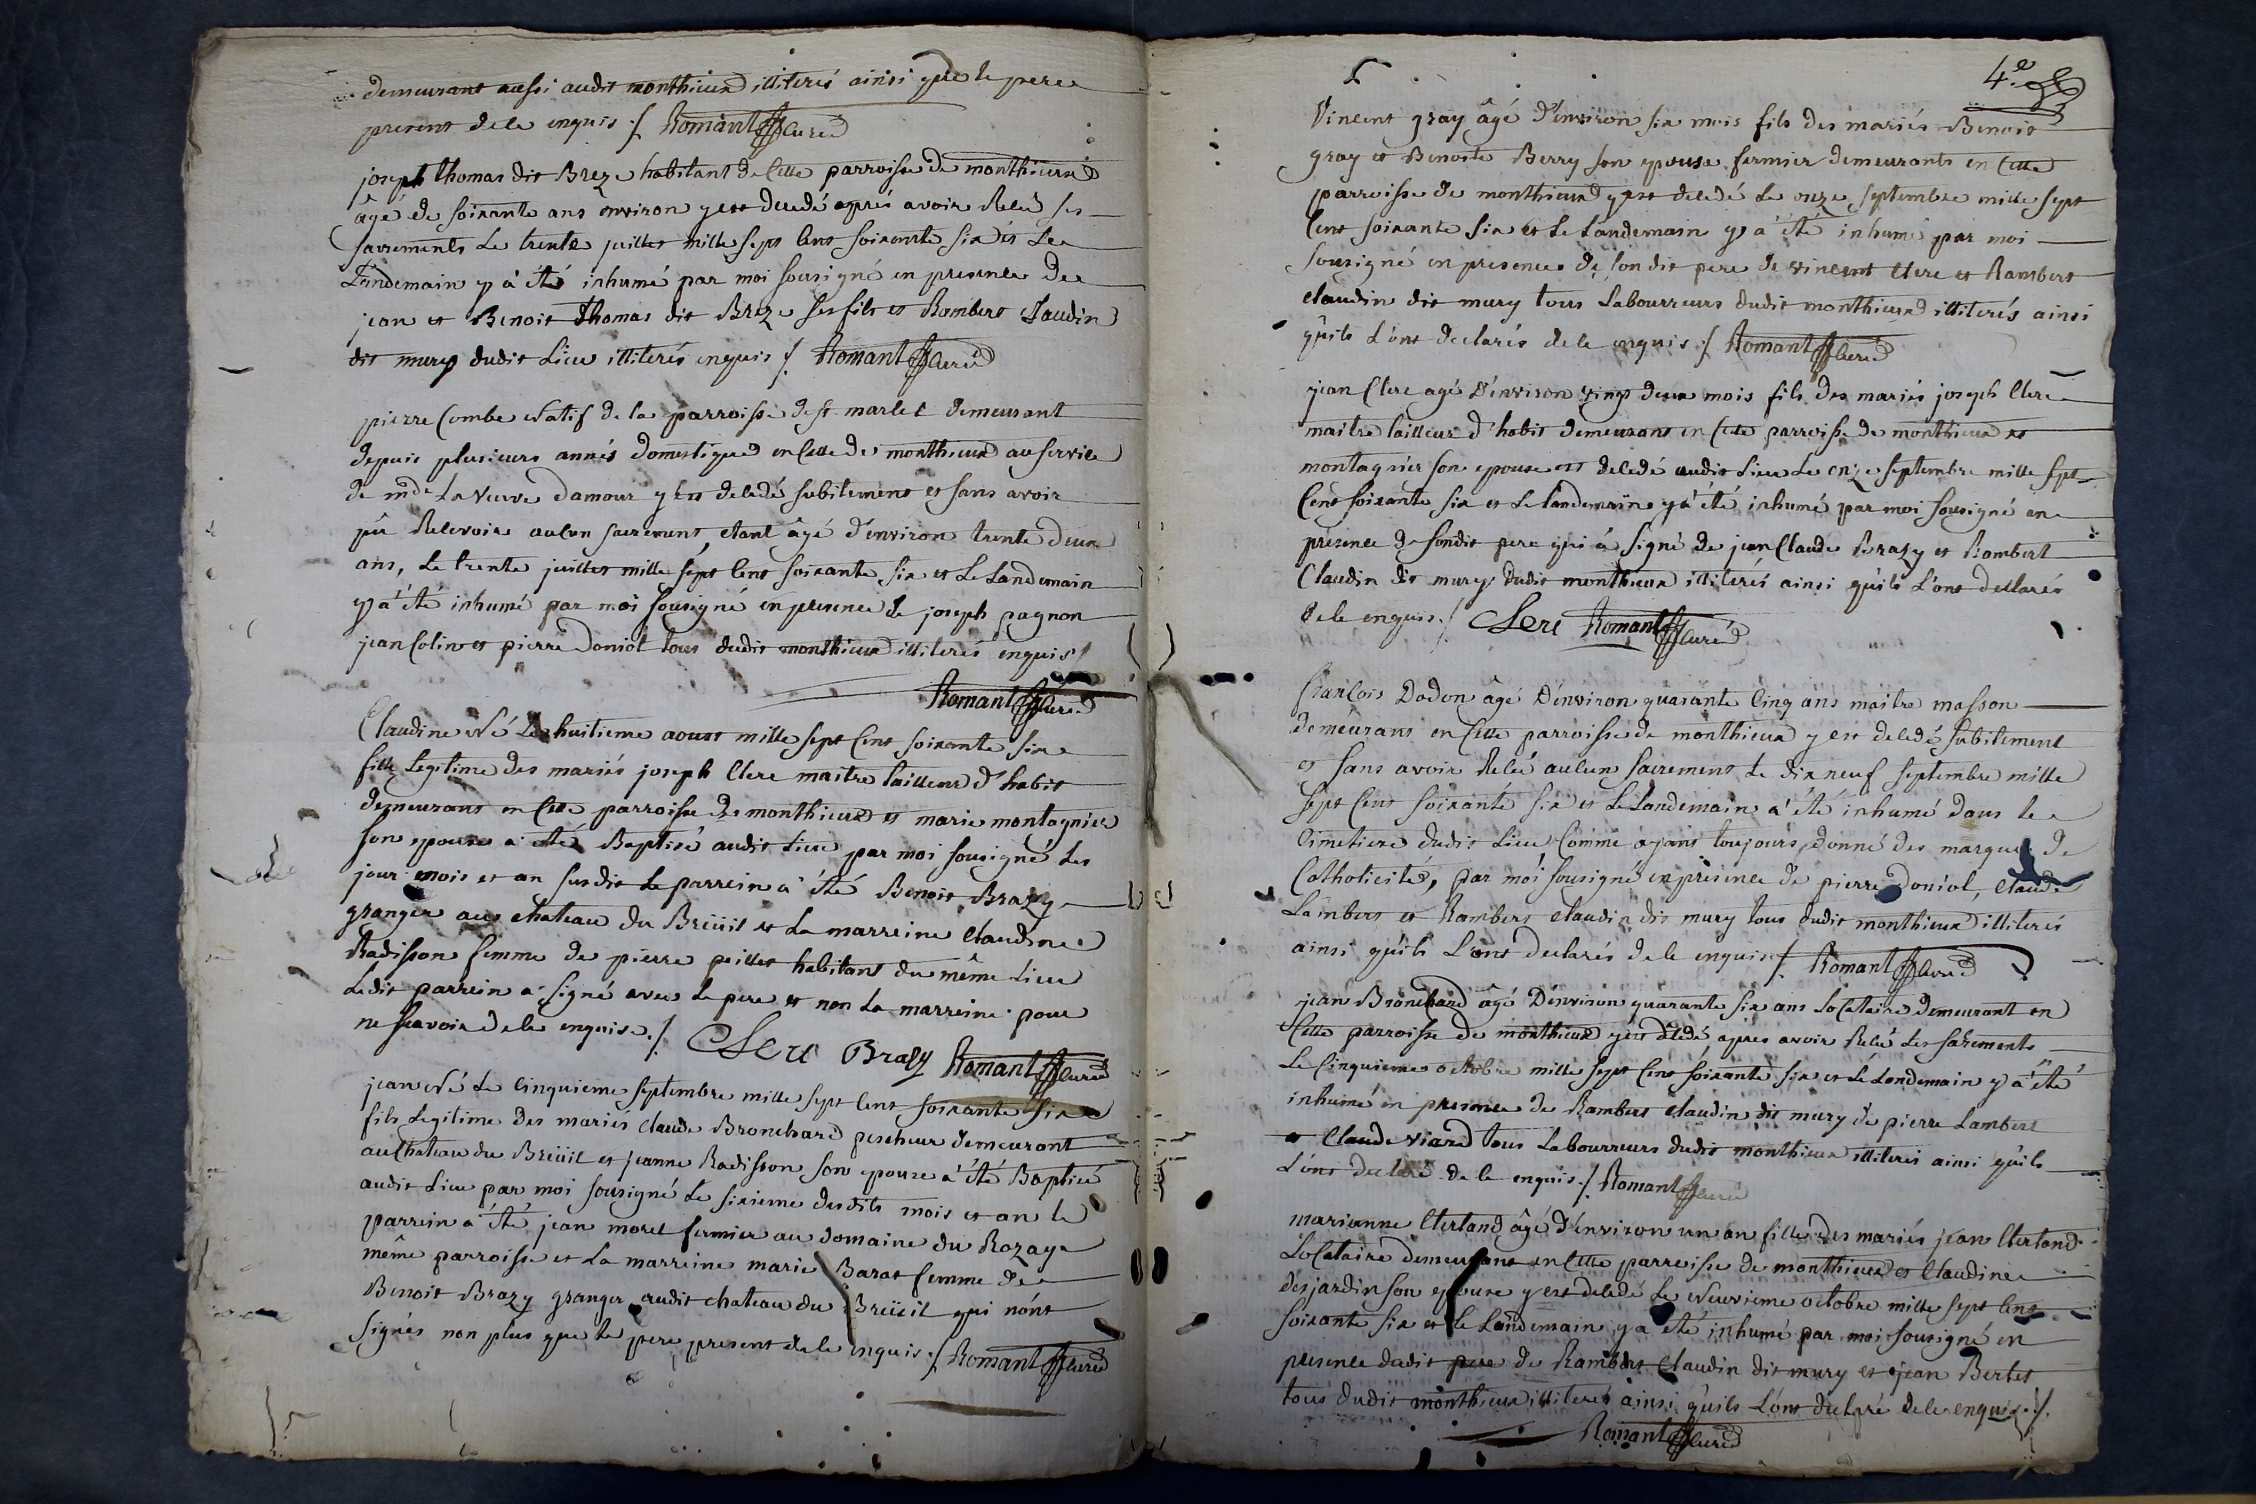 demeurant aussi audit monthieux illiterés ainsi que le pere
present de ce enquis ./. Romant curé
joseph thomas dit Breze habitant de cette parroisse de monthieux
âgé de soixante ans environ y est decedé aprés avoir Recû ses
sacrements Le trente juillet mille sept cent soixante six et Le
Landemain y à été inhumé par moi sousigné en presence de
jean et Benoit thomas dit Breze ses fils et Rambert Claudin
dit mury dudit Lieu illiterés enquis ./. Romant curé
pierre Combe Natif de la parroisse de st marlet demeurant
depuis plusieurs annés domestique en cette de monthieux au service
de mde La veuve damour y est decedé subitement et sans avoir
pû Recevoir aucun sacrement, etant âgé d'environ trente deux
ans, Le trente juillet mille sept cent soixante six et Le Landemain
y à été inhumé par moi sousigné en presence de joseph pagnon
jean Colin et pierre Doniol tous dudit monthieux illiterés enquis /
Romant curé
Claudine Né Le huitieme aoust mille sept cent soixante six
fille Legitime des mariés joseph Clere maitre tailleur d'habit
demeurant en cette parroisse de monthieux et marie montagnier
son epouse a été Baptisé audit Lieu par moi sousigné Les
jour mois et an susdit Le parrein a été Benoit Brazy
granger au chateau du Breüil et La marreine Claudine
Radisson femme de pierre peillet habitant du même Lieu
Ledit parrein a signé avec Le pere et non La marreine pour
ne scavoir de ce enquise ./. Clere Brasy Romant curé
jean Né Le cinquieme septembre mille sept cent soixante six
fils Legitime des mariés Claude Bronchard pescheur demeurant
au Chateau du Breüil et jeanne Radisson son epouze à été Baptisé
audit Lieu par moi sousigné Le sixieme desdits mois et an le
parrein a été jean morel fermier au domaine du Rozaye
même parroisse et La marreine marie Barat femme de
Benoit Brazy granger audit chateau du Breüil qui n'ont
signés non plus que le pere present de ce enquis ./. Romant curé
4.e
Vincent gray âgé d'environ six mois fils des mariés Benoit
gray et Benoite Berry son epouse fermier demeurants en cette
parroisse de monthieux y est decedé Le onze septembre mille sept
cent soixante six et Le Landemain y à été inhumé par moi
sousigné en presence de sondit pere de vincent Clere et Rambert
claudin dit mury tous Labourreurs dudit monthieux illiterés ainsi
qu'ils L'ont declarés de ce enquis ./. Romant curé
jean Clere agé d'environ vingt deux mois fils des mariés joseph Clere
maitre tailleur d'habit demeurant en cette parroisse de monthieux et
montagnier son epouse est decedé audit Lieu Le onze septembre mille sept
cent soixante six et Le landemain y a été inhumé par moi sousigné en
presence de sondit pere qui à signé de jean Claude Brazy et Rambert
Claudin dit mury dudit monthieux illiterés ainsi qu'ils L'ont declarés
de ce enquis ./. Clere Romant curé
francois Dodon âgé d'environ quarante cinq ans maitre masson
demeurans en cette parroisse de monthieux y est decedé subitement
et sans avoir Recû aucun sacrement Le dix neuf septembre mille
sept cent soixante six et Le Landemain à été inhumé dans le
cimetiere dudit Lieu Comme ayant toujours donné des marques de
Catholicité, par moi sousigné en presence de pierre Doniol, Claude
Lambert et Rambert claudin dit mury tous dudit monthieux illiterés
ainsi qu'ils L'ont declarés de ce enquis ./. Romant curé
jean Bronchard âgé d'environ quarante six ans Locataire demeurant en
cette parroisse de monthieux y est decedé, aprés avoir Recû les sacrements
Le cinquieme octobre mille sept cent soixante six et Le Landemain y à été
inhumé en presence de Rambert claudin dit mury de pierre Lambert
et Claude viard tous Labourreurs dudit monthieux illiterés ainsi qu'ils
L'ont declaré de ce enquis ./. Romant curé
marianne Clertand âgé d'environ un an fille des mariés jean Clertand
Locataire demeurant en cette parroisse de monthieux et Claudine
desjardin son epouse y est decedé Le Neuvieme octobre mille sept cent
soixante six et Le Landemain y a été inhumé par moi sousigné en
presence dudit pere de Rambert Claudin dit mury et jean Bertet
tous dudit monthieux illiterés ainsi qu'ils L'ont declaré de ce enquis ./.
Romant curé